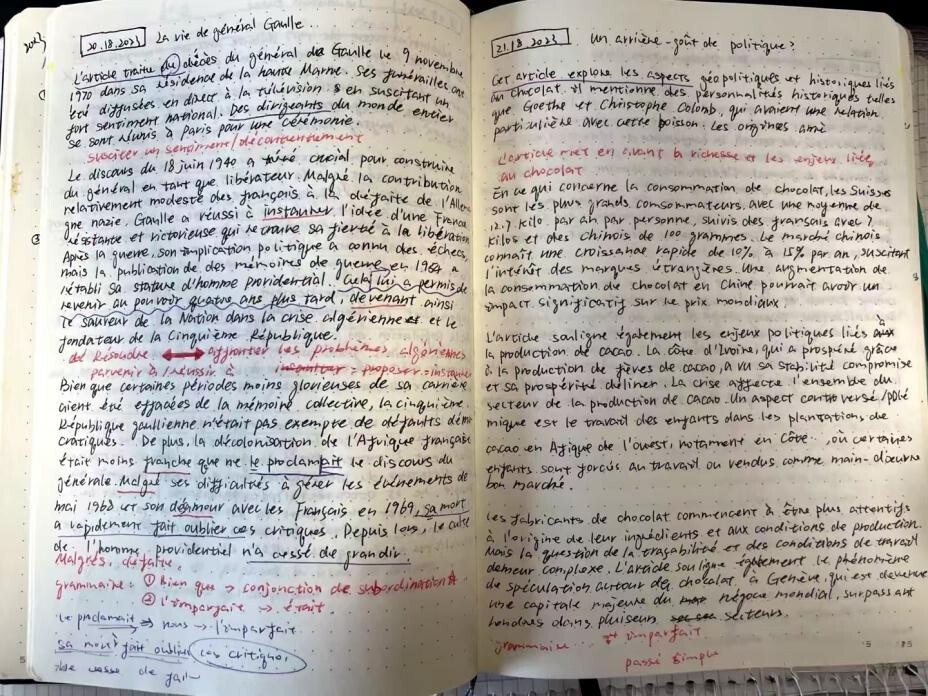 20.18.2023 La vie de général Gaulle..
L'article traite du décès du général de Gaulle le 9 novembre
1970 dans sa résidence de la haute Marne. Ses funérailles ont
été diffusées en direct à la télévision en suscitant un
fort sentiment national. Des dirigeants du monde entier
se sont réunis à Paris pour une cérémonie.
susciter un sentiment / décontentement
Le discours du 18 juin 1940 a été crucial pour construire
du général en tant que libérateur. Malgré la contribution
relativement modeste des français à la défaite de l'Allema
gne nazie, Gaulle a réussi à instaurer l'idée d'une France
résistante et victorieuse qui retrouve sa fierté à la libération
Après la guerre, son implication politique a connu des échecs,
mais la publication de des mémoires de guerre en 1954 a
rétabli sa stature d'homme providential. Cela lui a permis de
revenir au pouvoir quatre ans plus tard, devenant ainsi
le sauveur de la Nation dans la crise algérienne et le
fondateur de la Cinquième République.
Résoudre ↔ affronter les problèmes algériennes
parvenir à / réussir à = proposer = instaurer
Bien que certaines périodes moins glorieuses de sa carrière
aient été effacées de la mémoire collective, la cinquième
République gaullienne n'était pas exempte de défauts démo
cratiques. De plus, la décolonisation de l'Afrique française
était moins franche que ne le proclamait le discours du
générale. Malgré ses difficultés à gérer les événements de
mai 1968 et son désamour avec les Français en 1969, sa mort
a rapidement fait oublier ces critiques. Depuis lors, le culte
de l'homme providentiel n'a cessé de grandir.
Malgrés, défaite.
grammaire: ① Bien que → conjonction de subordination
② l'imparfait → était
le proclamait → nous → l'imparfait
sa mort fait oublier ces critiques
cesse de
21.18.2023 Un arrière-goût de politique?
Cet article explore les aspects géopolitiques et historiques liés
au chocolat. Il mentionne des personnalités historiques telles
que Goethe et Christophe Colomb, qui avaient une relation
particulière avec cette boisson. Les origines amé
L'article met en avant la richesse et les enjeux liés
au chocolat
En ce qui concerne la consommation de chocolat, les Suisses
sont les plus grands consommateurs, avec une moyenne de
12.7 kilo par an par personne, suivis des français avec 7
kilos et des chinois de 100 grammes. Le marché chinois
connaît une croissance rapide de 10% à 15% par an, suscitant
l'intérêt des marques étrangères. Une augmentation de
la consommation de chocolat en Chine pourrait avoir un
impact significatif sur le prix mondiaux.
L'article souligne également les enjeux politiques liés à
la production de cacao. La côte d'Ivoire, qui a prospéré grâce
à la production de fèves de cacao, a vu sa stabilité compromise
et sa prospérité décliner. La crise affecte l'ensemble du
secteur de la production de cacao. Un aspect controversé/polé
mique est le travail des enfants dans les plantations de
cacao en Afrique de l'ouest, notament en Côte.., où certaines
enfants sont forcés au travail ou vendus comme main-d'œuvre
bon marché.
Les fabricants de chocolat commencent à être plus attentifs
à l'origine de leur ingrédients et aux conditions de production.
Mais la question de la traçabilité et des conditions de travail
demeur complexe. L'article souligne également le phénomène
de spéculation autour de chocolat, à Genève, qui est devenue
une capitale majeure du négoce mondial, surpassant
Londres dans plusieurs secteurs.
grammaire... imparfait
passé simple